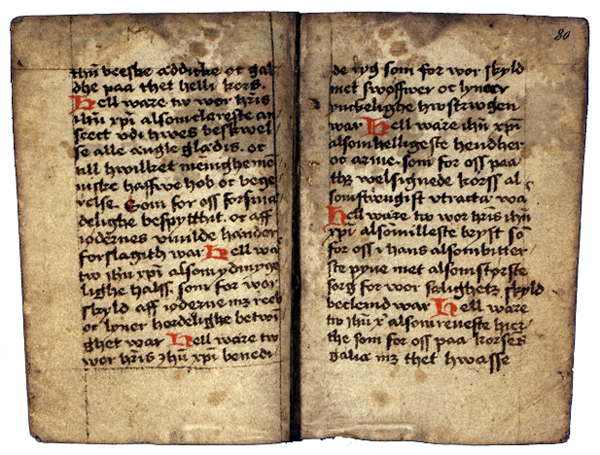 ihũ beeske æddicke oc gal
dhe paa thet helli kors.
Hell wære tw wor hr̃is
ihũ xp̃i alsom clareste an
seect vdi hwes beskwel
se alle ængle glædis. oc
till hwilket mēnighe me
niske haffwe hob oc bege
relse. Som for oss forsma
delighe bespytthit. oc aff
iødernes vmilde hænder
forslagith war Hell wæ
tw ihũ xp̃i alsom ydmyge
lighe halss. som for wor
skyld aff iøderne mz reeb
oc lyner hordelighe betwī
ghet war Hell wære tw
wor hr̃is ihũ xp̃i benedi
80
de ryg som for wor skyld
met swøffwer oc lyner
ynckelighe hwstrwgen
war Hell wære ihũ xp̃i
alsom helligeste hendher
oc arme. som for oss paa
thz welsignede korss al
som strēngist vtracta wa
Hell wære tw wor hr̃is ihũ
xp̃i alsom milleste bryst so
for oss i hans alsom bitter
ste pyne met alsom største
sorg for wor salighetz skyld
beclemd war Hell wære
tw ihũ x̃ alsom reneste hier
the som for oss paa korses
galia mz thet hwasse